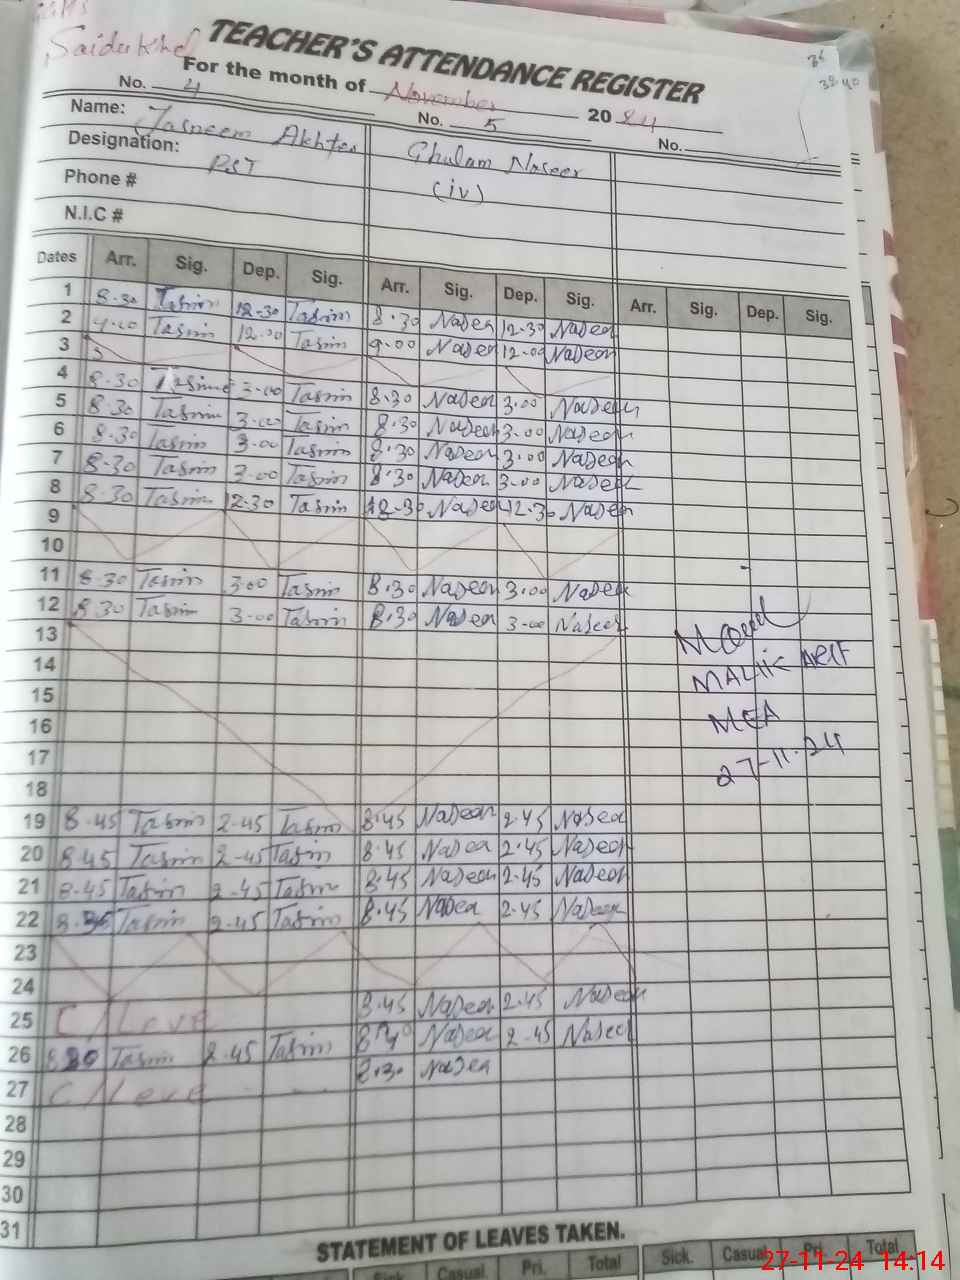 GGPS
Saidukhel
TEACHER'S ATTENDANCE REGISTER
For the month of November 2024
38
38 40
No. 4 No. 5 No.
Name: Tasneem Akhter Ghulam Naseer
Designation: PST (iv)
Phone #
N.I.C #
Dates Arr. Sig. Dep. Sig. Arr. Sig. Dep. Sig. Arr. Sig. Dep. Sig.
1 8.30 Tasnim 12.30 Tasnim 8.30 Naseer 12.30 Naseer
2 Tasnim 12.00 Tasnim 9.00 Naseer 12.00 Naseer
3
4 8.30 Tasnim 3.00 Tasnim 8.30 Naseer 3.00 Naseer
5 8.30 Tasnim 3.00 Tasnim 8.30 Naseer 3.00 Naseer
6 8.30 Tasnim 3.00 Tasnim 8.30 Naseer 3.00 Naseer
7 8.30 Tasnim 3.00 Tasnim 8.30 Naseer 3.00 Naseer
8 8.30 Tasnim 12.30 Tasnim 8.30 Naseer 12.30 Naseer
9
10
11 8.30 Tasnim 3.00 Tasnim 8.30 Naseer 3.00 Naseer
12 8.30 Tasnim 3.00 Tasnim 8.30 Naseer 3.00 Naseer
13
14
15
16
17
18
MALIK ARIF
MEA
27-11-24
19 8.45 Tasnim 2.45 Tasnim 8.45 Naseer 2.45 Naseer
20 8.45 Tasnim 2.45 Tasnim 8.45 Naseer 2.45 Naseer
21 8.45 Tasnim 2.45 Tasnim 8.45 Naseer 2.45 Naseer
22 Tasnim 2.45 Tasnim 8.45 Naseer 2.45 Naseer
23
24
25 C/Leve 8.45 Naseer 2.45 Naseer
26 Tasnim 2.45 Tasnim 8.40 Naseer 2.45 Naseer
27 C/Leve 8.30 Naseer
28
29
30
31
STATEMENT OF LEAVES TAKEN.
Sick Casual Pri. Total Sick. Casual Pri. Total
27-11-24 14:14